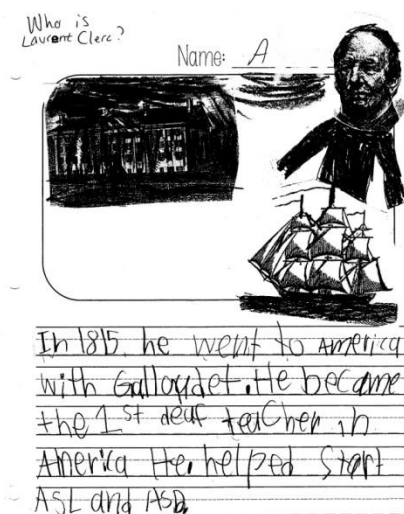 Who is
Laurent Clerc?
Name: A
In 1815 he went to America
with Galloudet. He became
the 1st deaf teacher in
America He helped start
ASL and ASD.